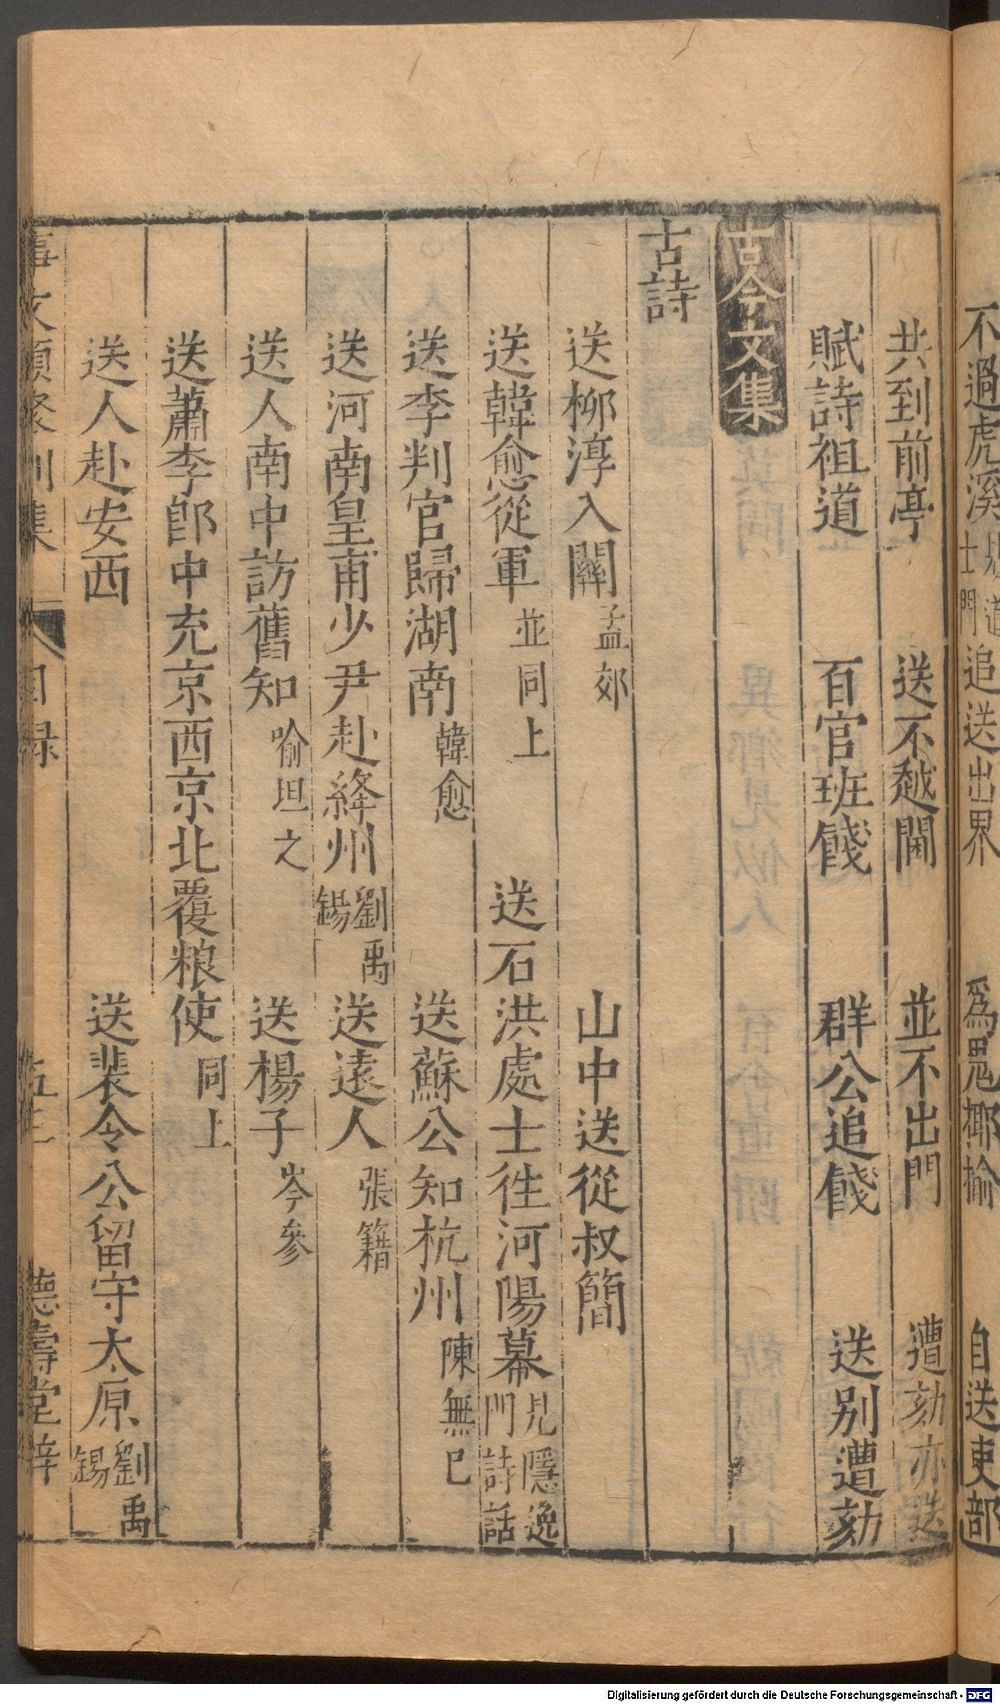 不過虎溪 見道士門 追送出界 爲鬼揶揄 自送吏部
共到前亭 送不越閫 並不出門 遭劾亦送
賦詩祖道 百官班餞 群公追餞 送別遭劾
古今文集
古詩
送柳淳入關 孟郊 山中送從叔簡
送韓愈從軍 並同上 送石洪處士徃河陽幕 見隱逸門詩話
送李判官歸湖南 韓愈 送蘇公知杭州 陳無已
送河南皇甫少尹赴絳州 劉禹錫 送遠人 張籍
送人南中訪舊知 喻坦之 送楊子 岑參
送蕭李郎中充京西京北覆粮使 同上
送人赴安西 送裴令公留守太原 劉禹錫
事文類聚別集 目録 五 德壽堂梓
Digitalisierung gefördert durch die Deutsche Forschungsgemeinschaft - DFG